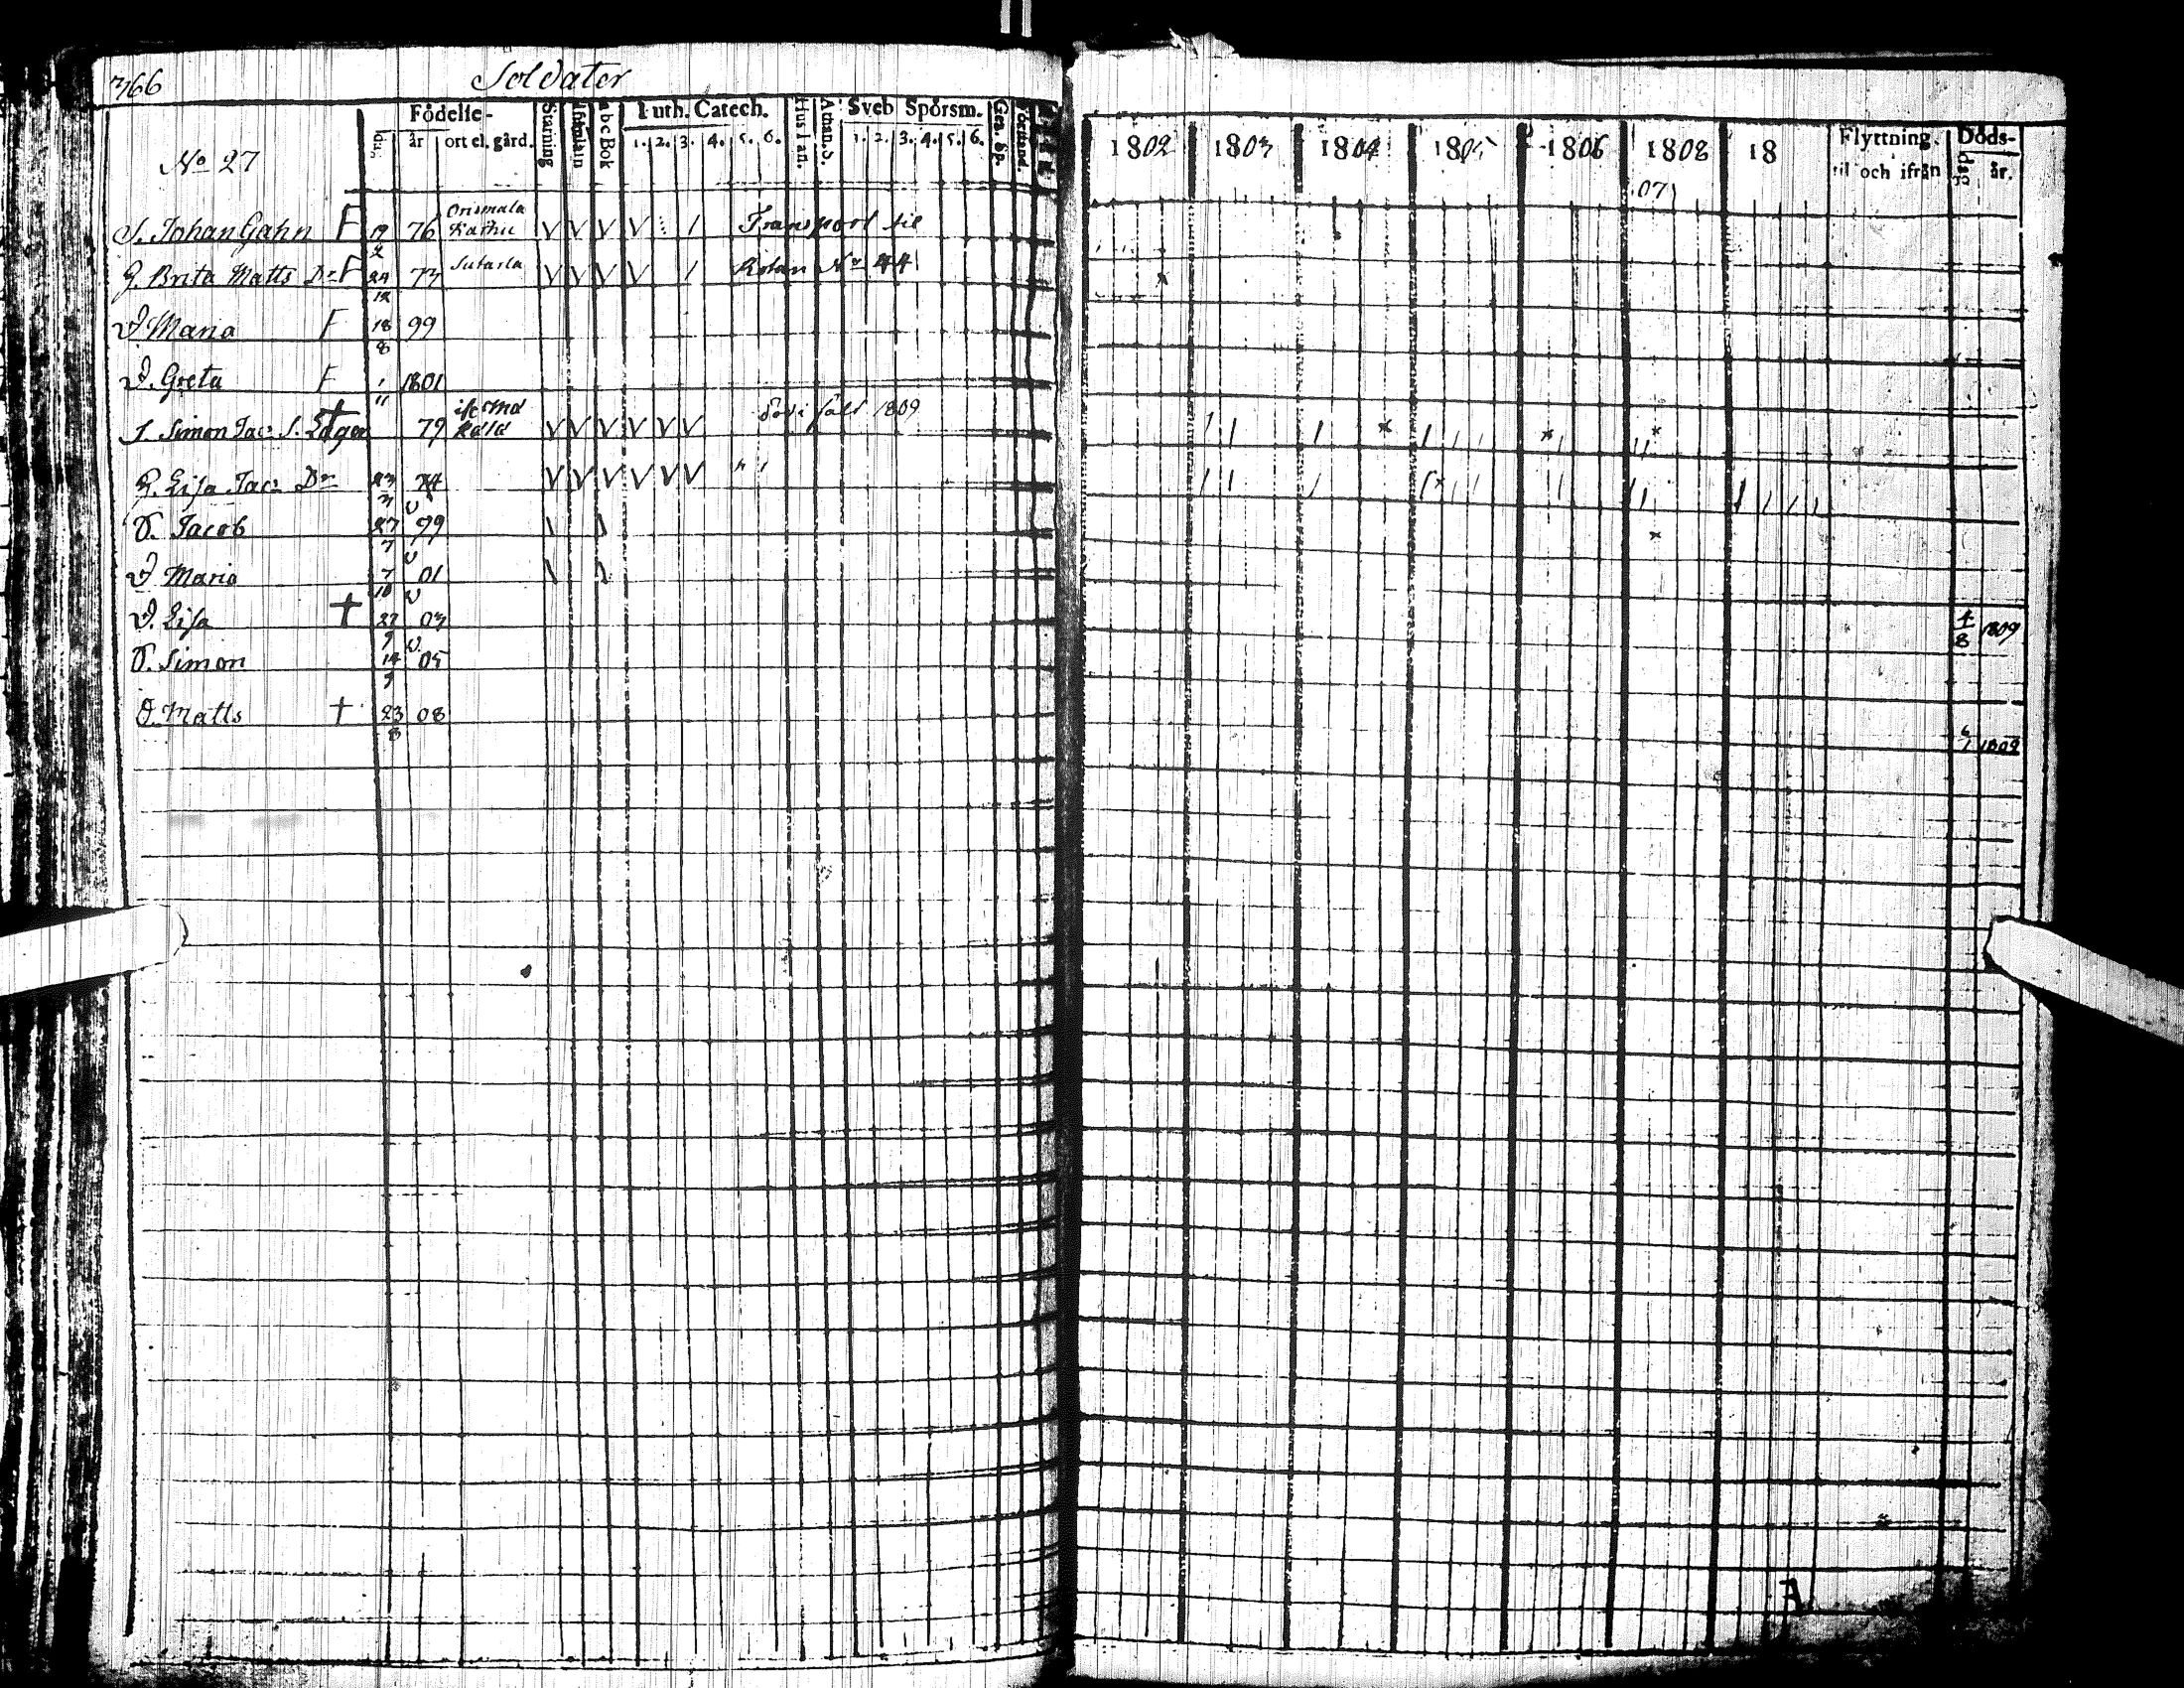 366 Soldater
Födelse-
Stafning
Innanläsn
abcBok
Luth. Catech.
Hustafl.
Athan. S.
Sveb Spörsm.
Gen. Sp.
Förstånd.
dag
år
ort el. gård.
1. 2. 3. 4. 5. 6.
1. 2. 3. 4. 5. 6.
1802 1803 1804 1805 1806 1808 18
07
Flyttning.
til och ifrån
Döds-
dag
år.
No 27
S. Johan Gahn F 19/2 76 Orismala V V V V / Transport til
H. Brita Matts Dr F 24/12 73 V V V V / Rotan No 44
D. Maria F 18/8 99
D. Greta F 1/11 1801
S. Simon Jac: S. Lager † 79 V V V V V V död i fält 1809
H. Lisa Jac: Dr 23/3 74 V V V V V V
S. Jacob 27/7 99
D. Maria 7/10 01
D. Lisa † 27/9 03 4/8 1809
S. Simon 14/9 05
S. Matts † 23/8 08